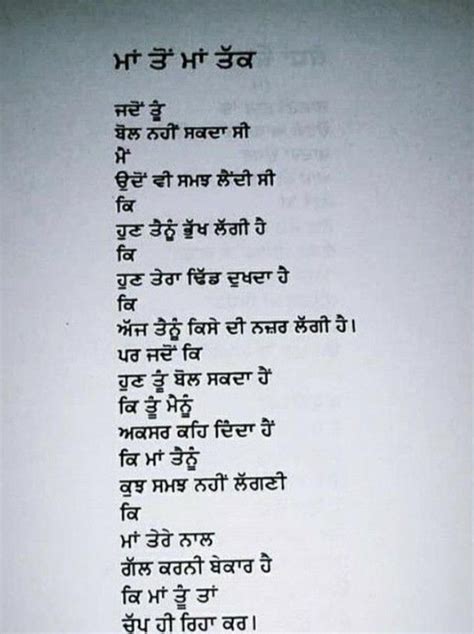 ਮਾਂ ਤੋਂ ਮਾਂ ਤੱਕ
ਜਦੋਂ ਤੂੰ
ਬੋਲ ਨਹੀਂ ਸਕਦਾ ਸੀ
ਮੈਂ
ਉਦੋਂ ਵੀ ਸਮਝ ਲੈਂਦੀ ਸੀ
ਕਿ
ਹੁਣ ਤੈਨੂੰ ਭੁੱਖ ਲੱਗੀ ਹੈ
ਕਿ
ਹੁਣ ਤੇਰਾ ਢਿੱਡ ਦੁਖਦਾ ਹੈ
ਕਿ
ਅੱਜ ਤੈਨੂੰ ਕਿਸੇ ਦੀ ਨਜ਼ਰ ਲੱਗੀ ਹੈ।
ਪਰ ਜਦੋਂ ਕਿ
ਹੁਣ ਤੂੰ ਬੋਲ ਸਕਦਾ ਹੈਂ
ਕਿ ਤੂੰ ਮੈਨੂੰ
ਅਕਸਰ ਕਹਿ ਦਿੰਦਾ ਹੈਂ
ਕਿ ਮਾਂ ਤੈਨੂੰ
ਕੁਝ ਸਮਝ ਨਹੀਂ ਲੱਗਣੀ
ਕਿ
ਮਾਂ ਤੇਰੇ ਨਾਲ
ਗੱਲ ਕਰਨੀ ਬੇਕਾਰ ਹੈ
ਕਿ ਮਾਂ ਤੂੰ ਤਾਂ
ਚੁੱਪ ਹੀ ਰਿਹਾ ਕਰ।